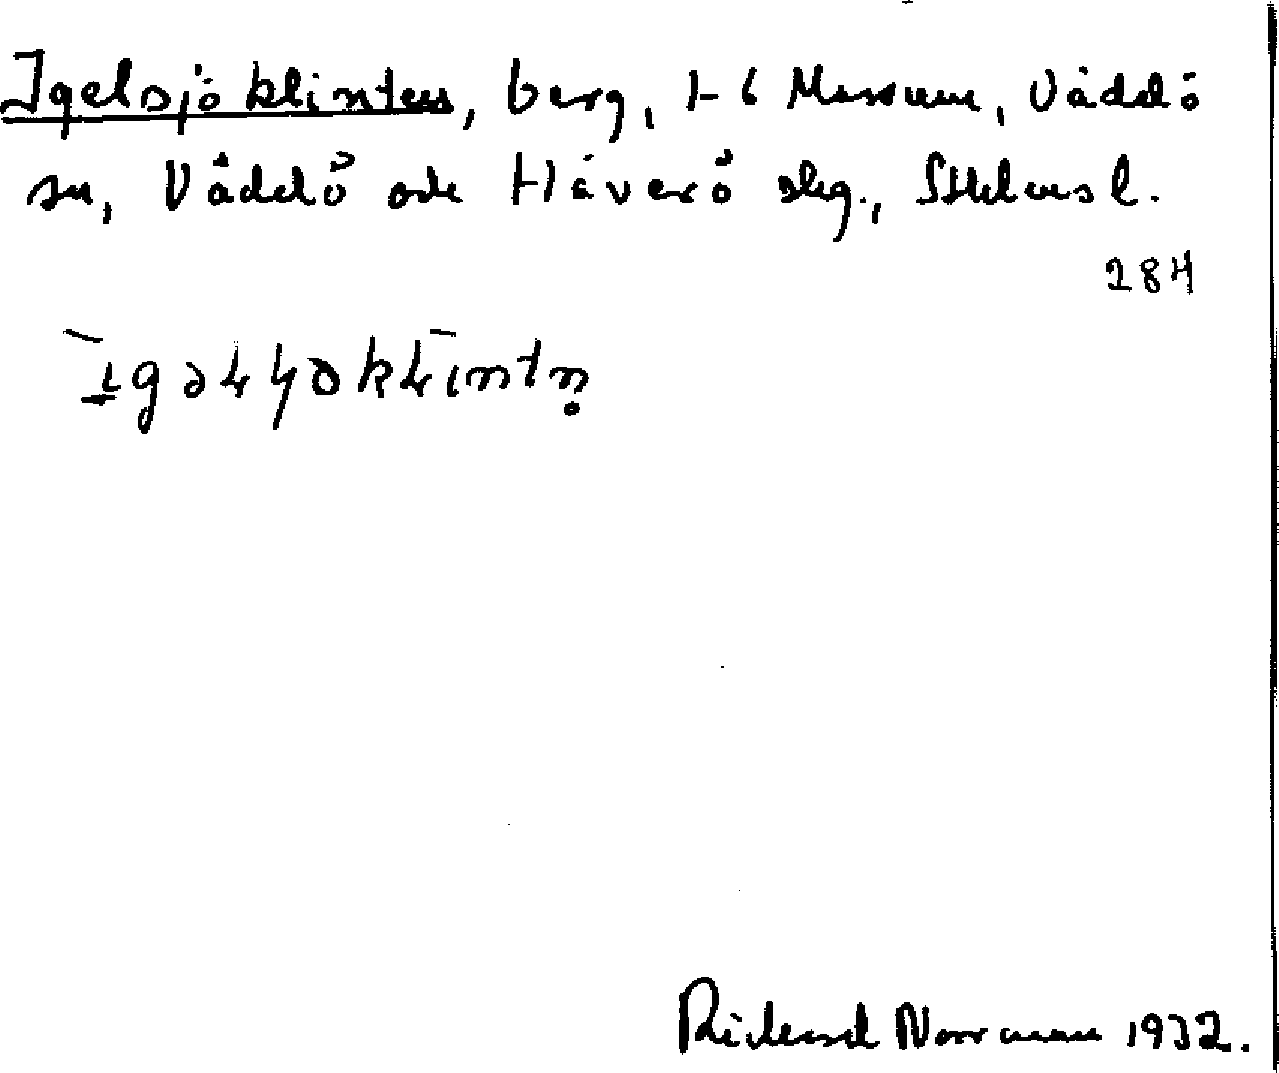 Igelsjöklinten, berg, 1-6 Massum, Väddö
sn, Väddö och Häverö skg., Sthlmsl.
284
Richard Norrman 1932.